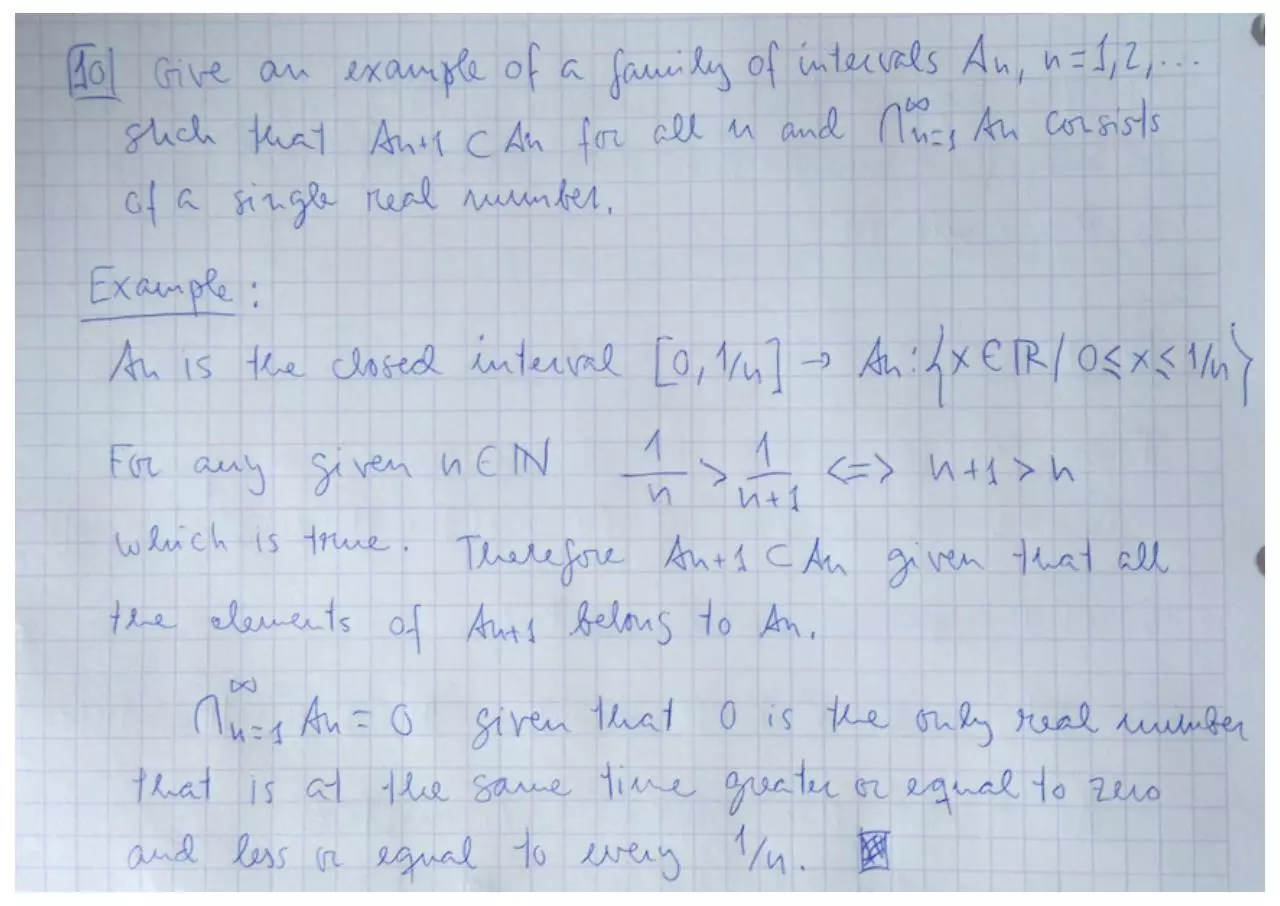 10 Give an example of a family of intervals An, n=1,2,...
such that An+1 ⊂ An for all n and ∩∞n=1 An consists
of a single real number.
Example:
An is the closed interval [0,1/n] → An:{x∈ℝ/ 0≤x≤1/n}
For any given n∈ℕ 1/n > 1/n+1 <=> n+1>n
which is true. Therefore An+1 ⊂ An given that all
the elements of An+1 belong to An.
∩∞n=1 An = 0 given that 0 is the only real number
that is at the same time greater or equal to zero
and less or equal to every 1/n.